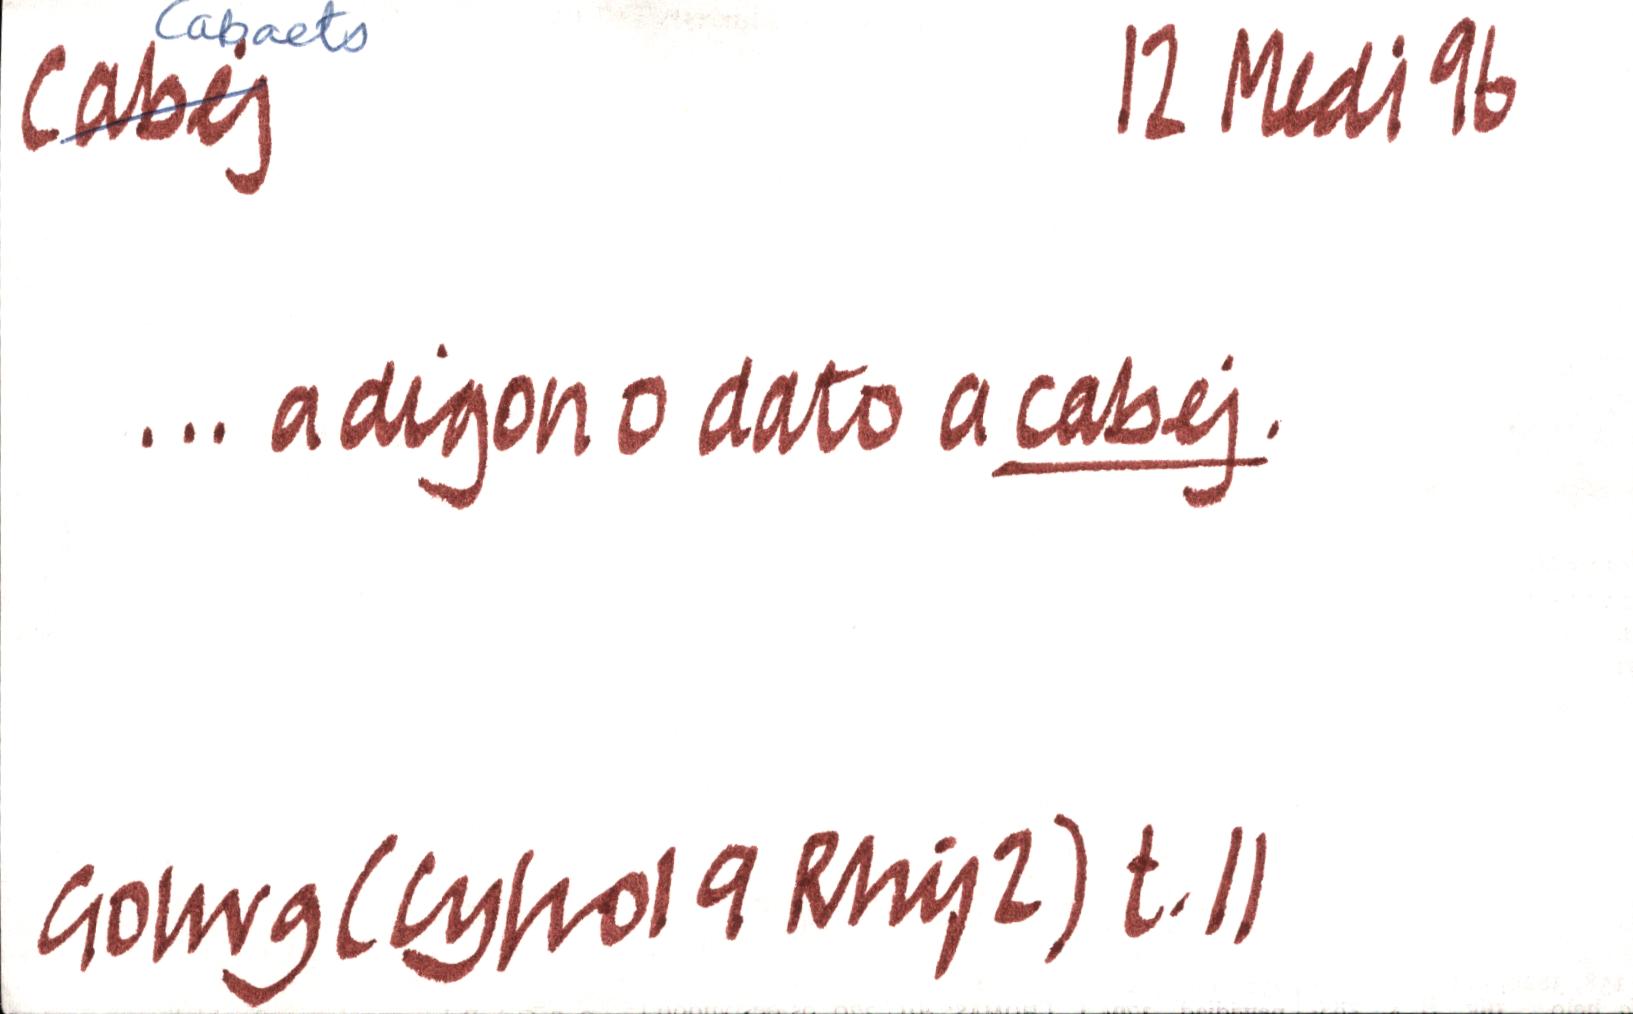 Cabaets
Cabej 12 Medi 96
... a digon o dato a cabej.
Golwg (Cyfrol 9 Rhif 2) t. 11